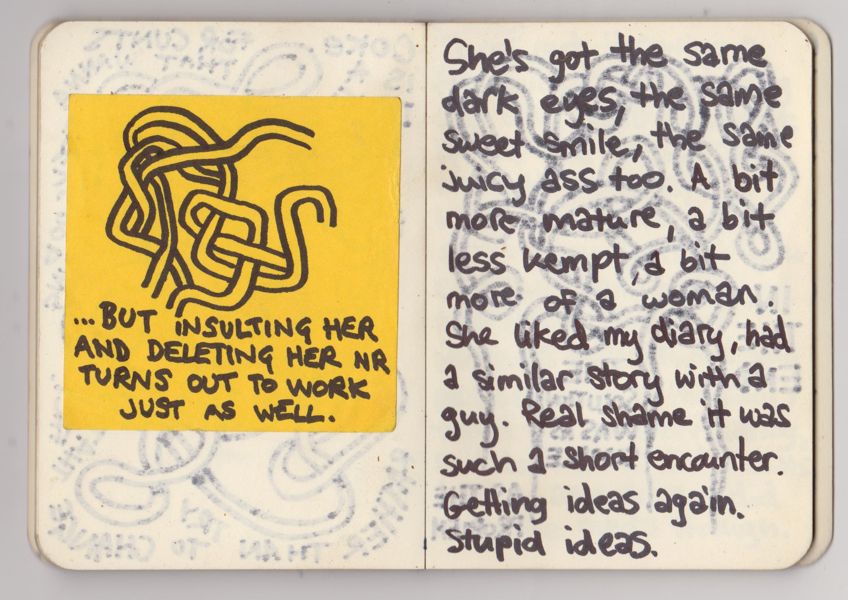 ...BUT INSULTING HER
AND DELETING HER NR
TURNS OUT TO WORK
JUST AS WELL.
She's got the same
dark eyes, the same
sweet smile, the same
juicy ass too. A bit
more mature, a bit
less kempt, a bit
more of a woman.
She liked my diary, had
a similar story with a
guy. Real shame it was
such a short encounter.
Getting ideas again.
Stupid ideas.